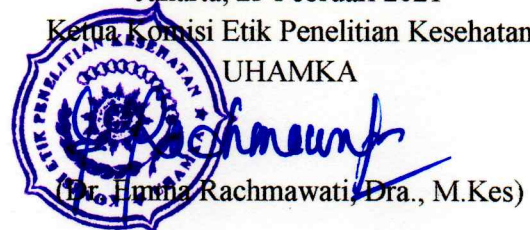 Ketua Komisi Etik Penelitian Kesehatan
UHAMKA
KOMISI ETIK PENELITIAN KESEHATAN
Rachmawati
(Dr. Emma Rachmawati, Dra., M.Kes)